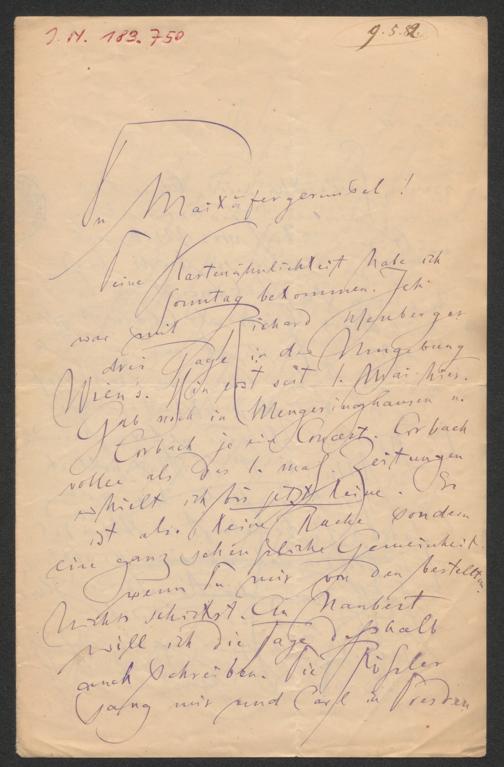 J. N. 189.750
9.5.82.
Du Maikäfergerumbel!
Deine Kartenähnlichkeit habe ich
Sonntag bekommen. Ich
war mit Richard Heuberger
drei Tage in der Umgebung
Wien's. Bin erst seit 1. Mai hier.
Gab noch in Mengeringhausen u.
Corbach je ein Concert. Corbach
voller als das 1. mal. Zeitungen
erhielt ich bis jetzt keine. Es
ist also keine Rache sondern
eine ganz schändliche Gemeinheit
wenn Du mir von den bestellten
Nichts schickst. An Naubert
will ich die Tage deßhalb
auch schreiben. Die Rößler
sang mir und Carl in Dresden